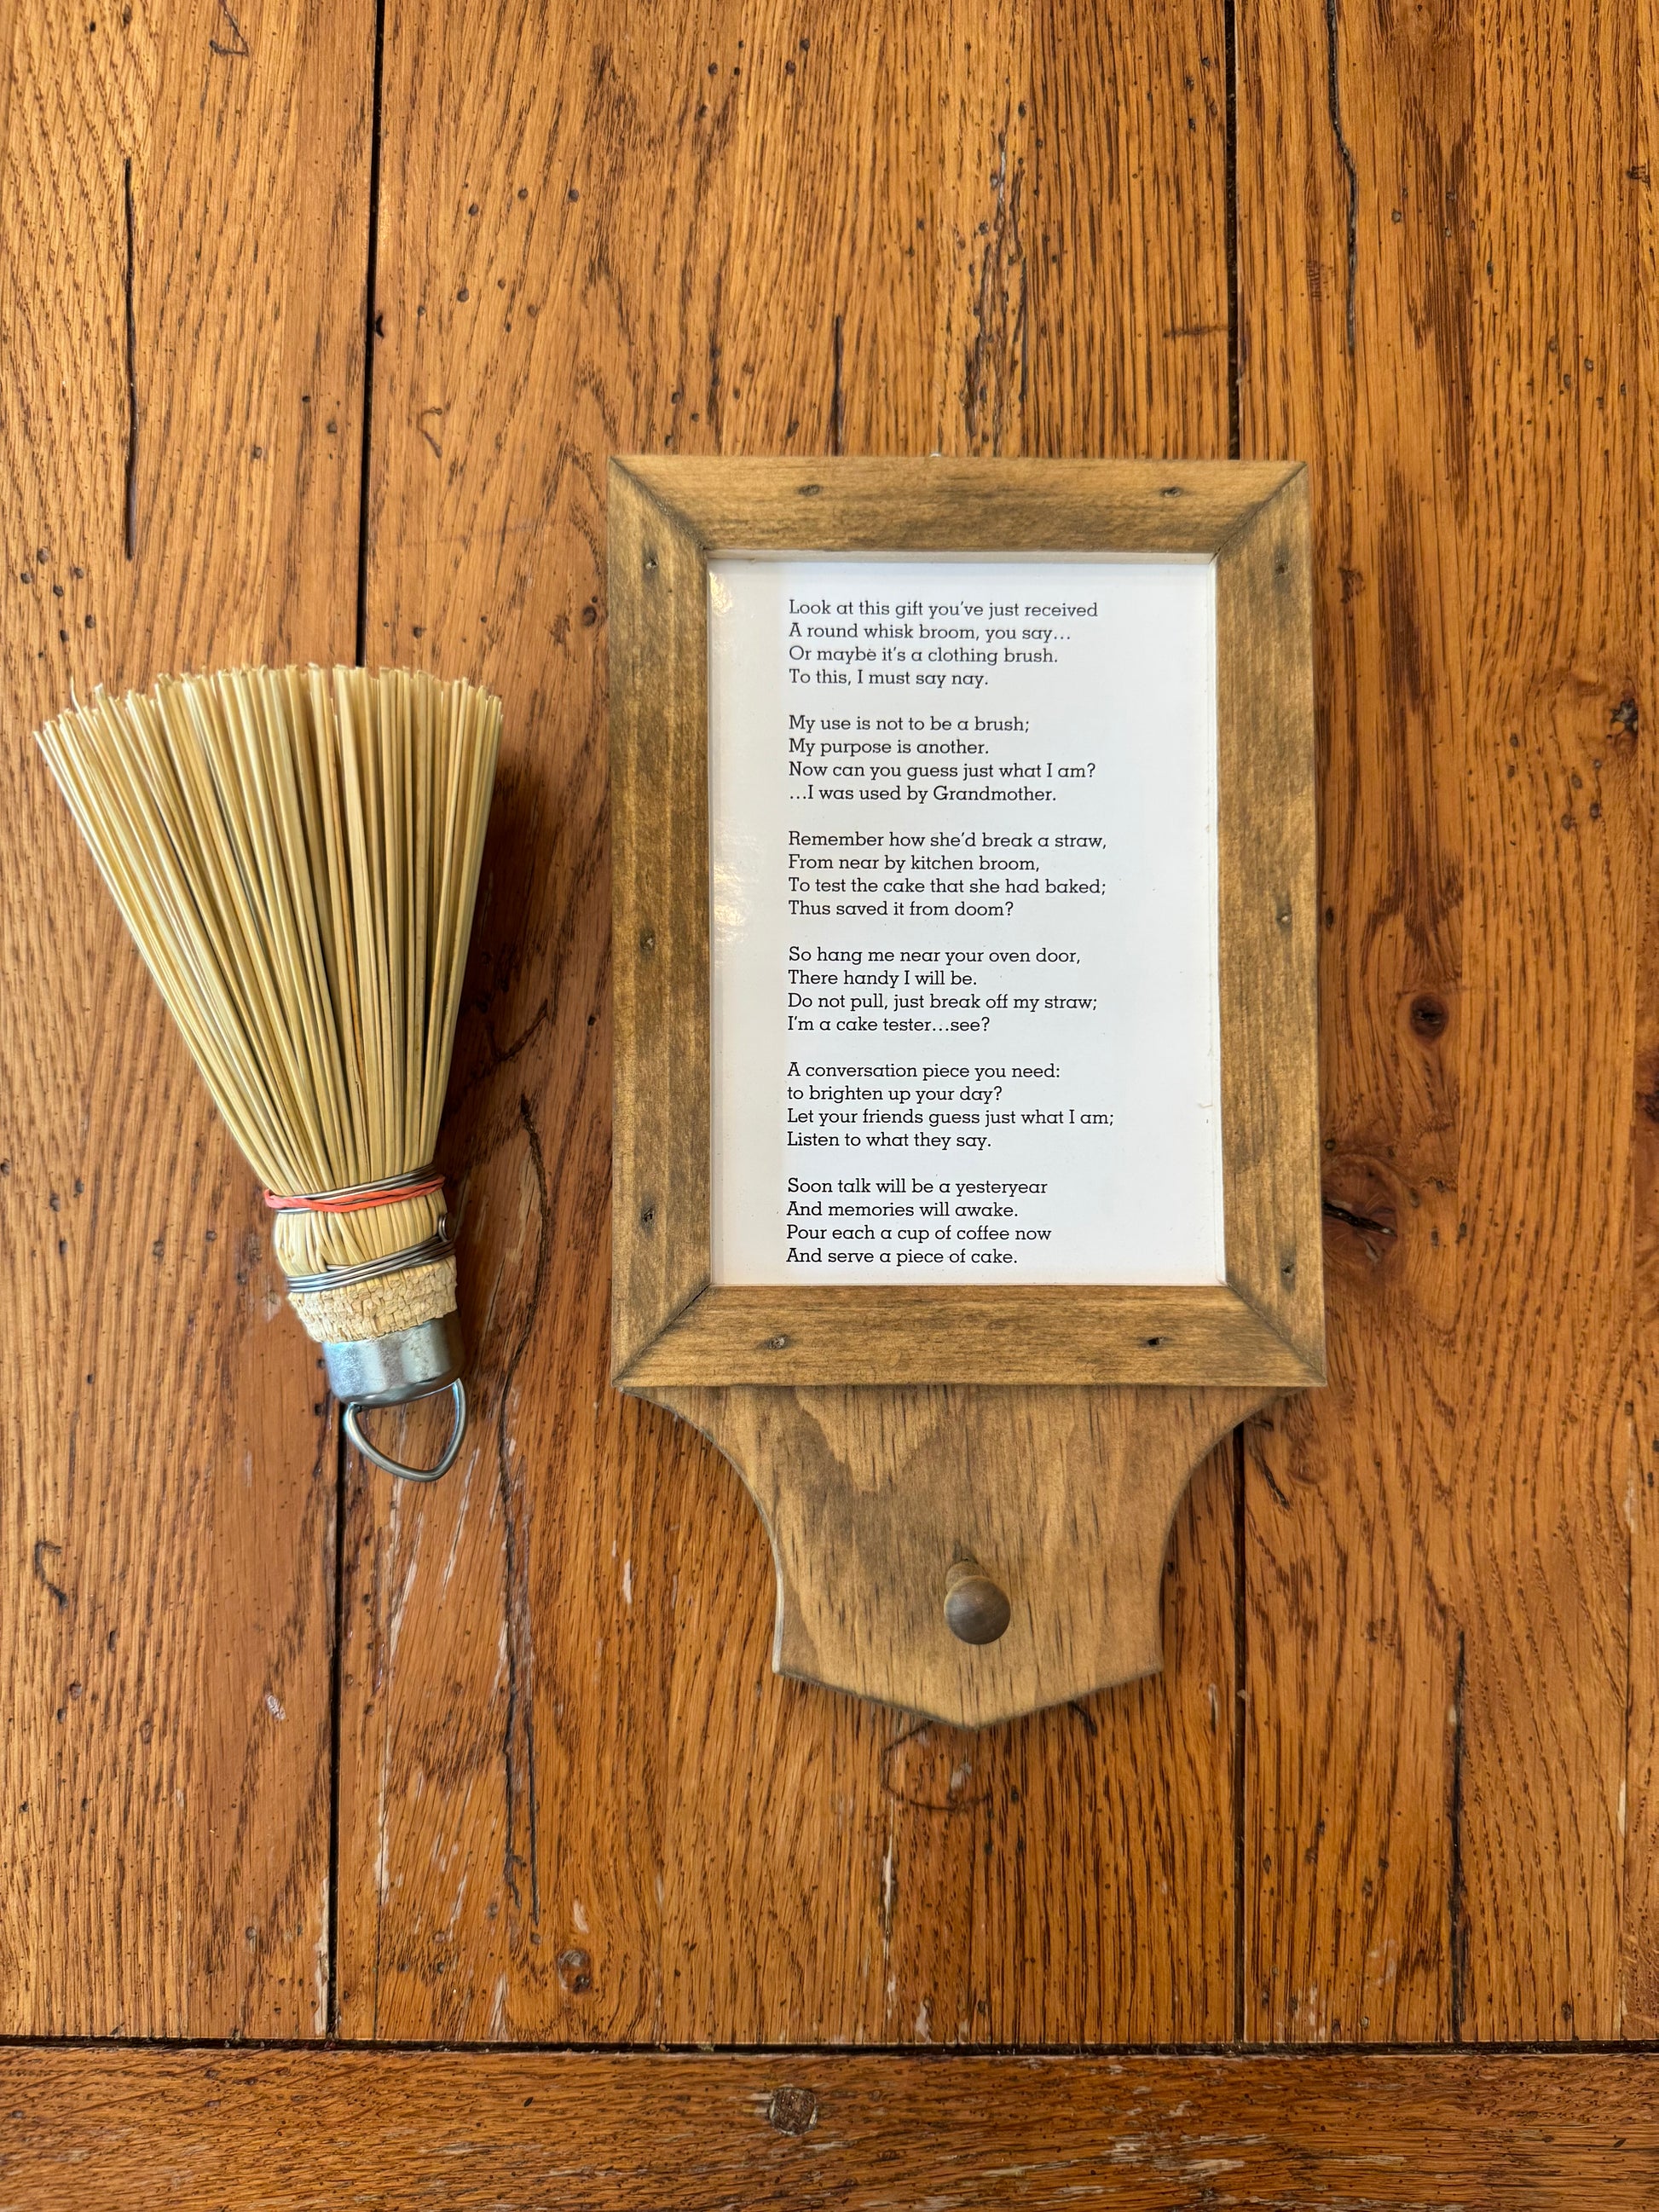 Look at this gift you've just received
A round whisk broom, you say...
Or maybe it's a clothing brush.
To this, I must say nay.
My use is not to be a brush;
My purpose is another.
Now can you guess just what I am?
...I was used by Grandmother.
Remember how she'd break a straw,
From near by kitchen broom,
To test the cake that she had baked;
Thus saved it from doom?
So hang me near your oven door,
There handy I will be.
Do not pull, just break off my straw;
I'm a cake tester...see?
A conversation piece you need:
to brighten up your day?
Let your friends guess just what I am;
Listen to what they say.
Soon talk will be a yesteryear
And memories will awake.
Pour each a cup of coffee now
And serve a piece of cake.